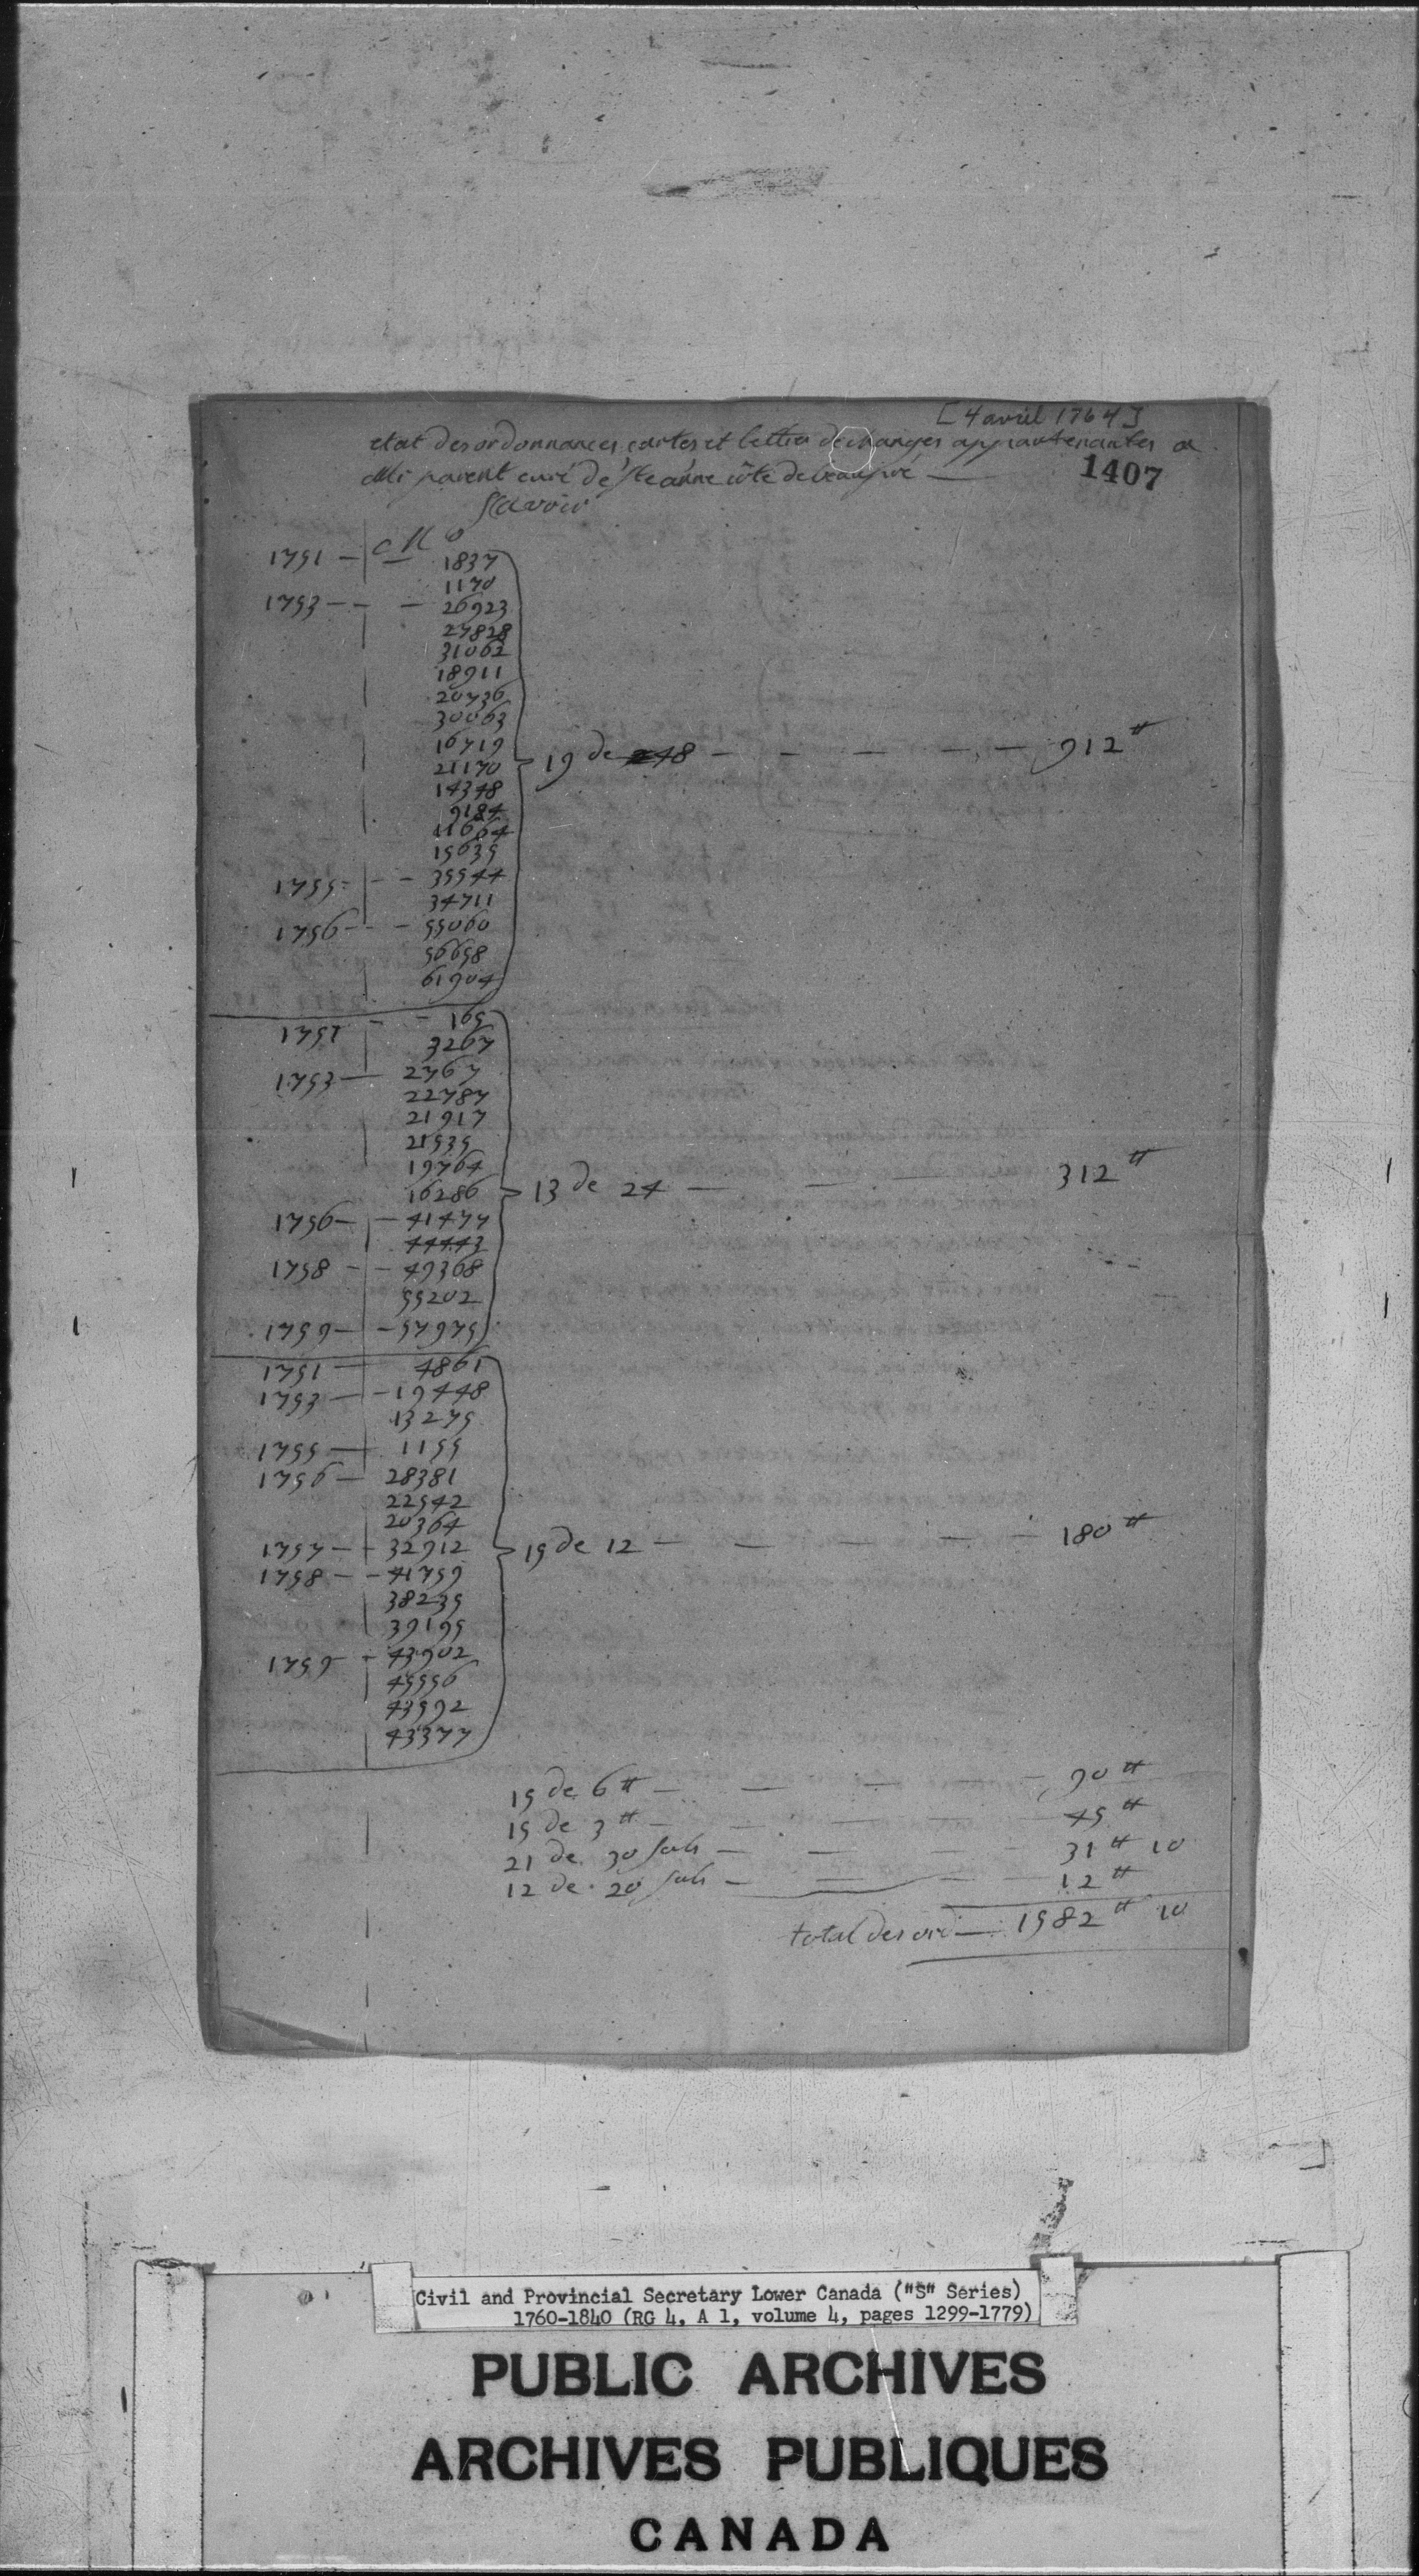 [4 avril 1764]
etat des ordonnances, cartes et lettres dechanges appartenantes a
Mr parent curé de Ste anne côte de beaupré —
1407
Scavoir
N°
1751 — — 1837
1170
1753 — — — 26923
27828
31062
18911
20736
30063
16719
21170
14348
9184
11664
15635
1755 — — 35544
34711
1756 — — — 55060
56658
61904
19 de 48 — — — — — 912 ₶
1751 — — 165
3267
1753 — 2767
22787
21917
21535
19764
16286
1756 — — 41477
44443
1758 — — 49368
55202
1759 — — 57975
13 de 24 — — — 312 ₶
1751 — 4861
1753 — — 19448
13275
1755 — 1155
1756 — 28381
22542
20364
1757 — — 32912
1758 — — 41759
38235
39195
1759 — 43902
45556
43592
43377
15 de 12 — — — — — 180 ₶
15 de 6 ₶ — — — — — 90 ₶
15 de 3 ₶ — — — — 45 ₶
21 de 30 sols — — — — 31 ₶ 10
12 de 20 sols — — — — 12 ₶
total des ord — 1582 ₶ 10
Civil and Provincial Secretary Lower Canada ("S" Series)
1760-1840 (RG 4, A 1, volume 4, pages 1299-1779)
PUBLIC ARCHIVES
ARCHIVES PUBLIQUES
CANADA